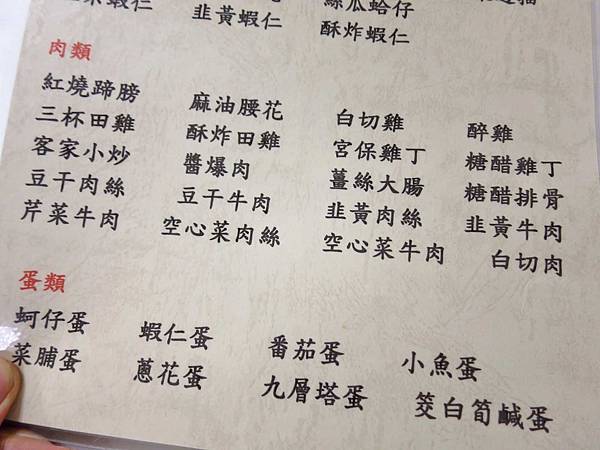 蝦仁 韭黃蝦仁 絲瓜蛤仔
酥炸蝦仁
肉類
紅燒蹄膀 麻油腰花 白切雞 醉雞
三杯田雞 酥炸田雞 宮保雞丁 糖醋雞丁
客家小炒 醬爆肉 薑絲大腸 糖醋排骨
豆干肉絲 豆干牛肉 韭黃肉絲 韭黃牛肉
芹菜牛肉 空心菜肉絲 空心菜牛肉 白切肉
蛋類
蚵仔蛋 蝦仁蛋 番茄蛋 小魚蛋
菜脯蛋 蔥花蛋 九層塔蛋 筊白筍鹹蛋